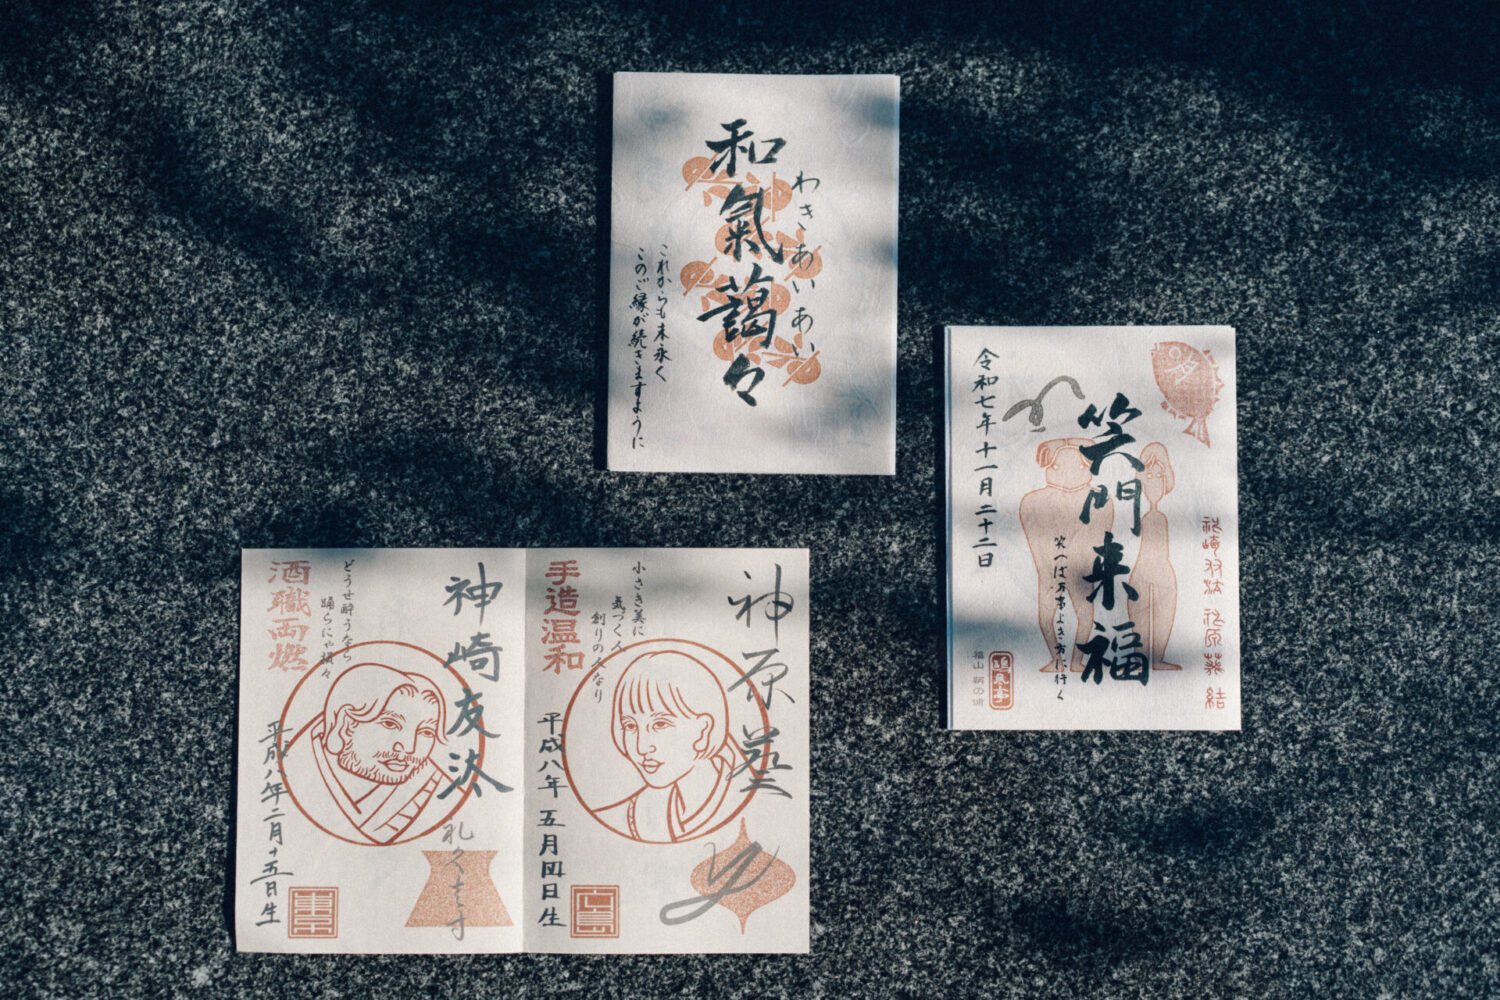 和氣藹々
わきあいあい
これからも末永く
このご縁が続きますように
笑門来福
笑へば万事よき方に行く
令和七年十一月二十二日
福山 鞆の浦
神原葵
小さき美に
気づく人
創りの人なり
手造温和
平成八年 五月四日生
神崎友汰
どうせ酔うなら
踊らにゃ損々
酒職両燃
平成八年二月十五日生